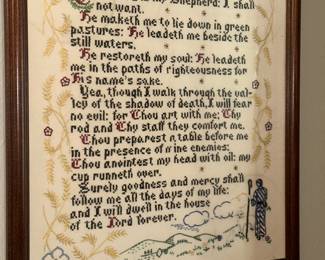 my Shepherd: I shall
not want.
He maketh me to lie down in green
pastures: He leadeth me beside the
still waters.
He restoreth my soul: He leadeth
me in the paths of righteousness for
His name's sake.
Yea, though I walk through the val-
ley of the shadow of death, I will fear
no evil: for Thou art with me; Thy
rod and Thy staff they comfort me.
Thou preparest a table before me
in the presence of mine enemies:
Thou anointest my head with oil: my
cup runneth over.
Surely goodness and mercy shall
follow me all the days of my life:
and I will dwell in the house
of the Lord forever.